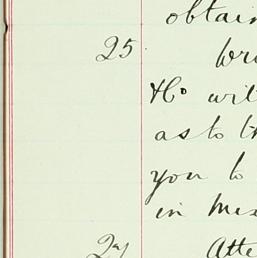 obtain
25 Wri
Ho wit
as to th
you to
in Mex
27 Atte